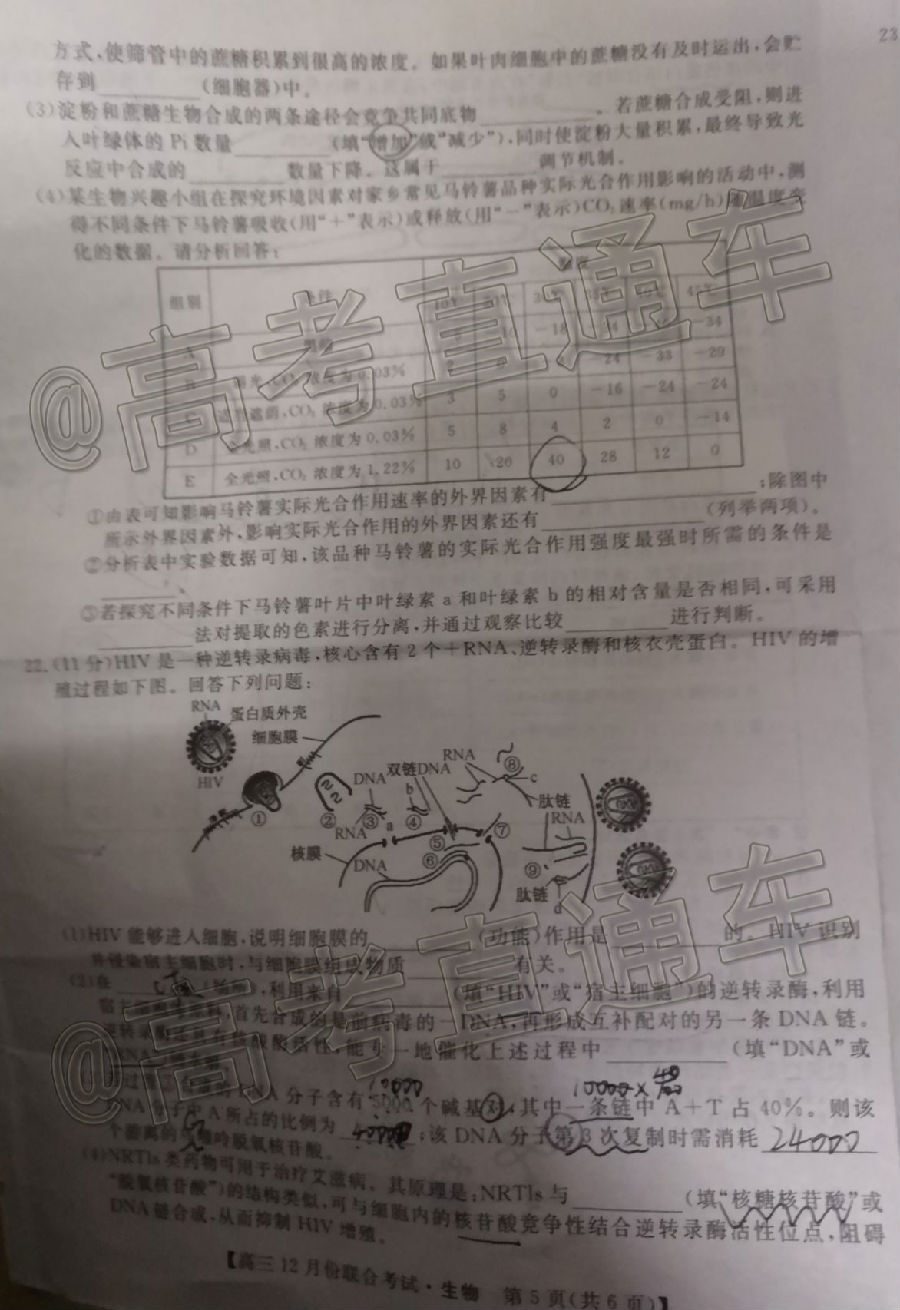 23
方式,使筛管中的蔗糖积累到很高的浓度。如果叶肉细胞中的蔗糖没有及时运出,会贮
存到________(细胞器)中。
(3)淀粉和蔗糖生物合成的两条途径会竞争共同底物________。若蔗糖合成受阻,则进
入叶绿体的 Pi 数量________(填“增加”或“减少”),同时使淀粉大量积累,最终导致光
反应中合成的________数量下降。这属于________调节机制。
(4)某生物兴趣小组在探究环境因素对家乡常见马铃薯品种实际光合作用影响的活动中,测
得不同条件下马铃薯吸收(用“+”表示)或释放(用“-”表示)CO₂速率(mg/h)随温度变
化的数据。请分析回答:
组别 条件 温度
10℃ 20℃
-34
0.03% -24 -33 -29
C 遮阴,CO₂ 浓度为 0.03% 3 5 0 -16 -24 -24
D 全光照,CO₂ 浓度为 0.03% 5 8 4 2 0 -14
E 全光照,CO₂ 浓度为 1.22% 10 20 40 28 12 0
①由表可知影响马铃薯实际光合作用速率的外界因素有________;除图中
所示外界因素外,影响实际光合作用的外界因素还有________(列举两项)。
②分析表中实验数据可知,该品种马铃薯的实际光合作用强度最强时所需的条件是
________。
③若探究不同条件下马铃薯叶片中叶绿素 a 和叶绿素 b 的相对含量是否相同,可采用
________法对提取的色素进行分离,并通过观察比较________进行判断。
22.(11分)HIV 是一种逆转录病毒,核心含有 2 个+RNA、逆转录酶和核衣壳蛋白。HIV 的增
殖过程如下图。回答下列问题:
RNA
蛋白质外壳
细胞膜
HIV
①
②
RNA
DNA
③
a
双链DNA
b
④
RNA
⑧
c
肽链
RNA
核膜
DNA
⑤
⑥
⑦
⑨
肽链
d
(1)HIV 能够进入细胞,说明细胞膜的________(功能)作用是________的。HIV 识别
并侵染宿主细胞时,与细胞膜组成物质________有关。
(2)在________(场所),利用来自________(填“HIV”或“宿主细胞”)的逆转录酶,利用
宿主细胞的原料,首先合成的是前病毒的一DNA,再形成互补配对的另一条 DNA 链。
逆转录酶还具有核酸酶活性,能专一地催化上述过程中________(填“DNA”或
DNA 分子含有 5000 个碱基对,其中一条链中 A+T 占 40%。则该
10000
10000×
DNA 分子中 A 所占的比例为________;该 DNA 分子第 3 次复制时需消耗 24000
个游离的嘌呤脱氧核苷酸。
(4)NRTIs 类药物可用于治疗艾滋病。其原理是:NRTIs 与________(填“核糖核苷酸”或
“脱氧核苷酸”)的结构类似,可与细胞内的核苷酸竞争性结合逆转录酶活性位点,阻碍
DNA 链合成,从而抑制 HIV 增殖。
【高三 12 月份联合考试·生物 第 5 页(共 6 页)】
@高考直通车
@高考直通车